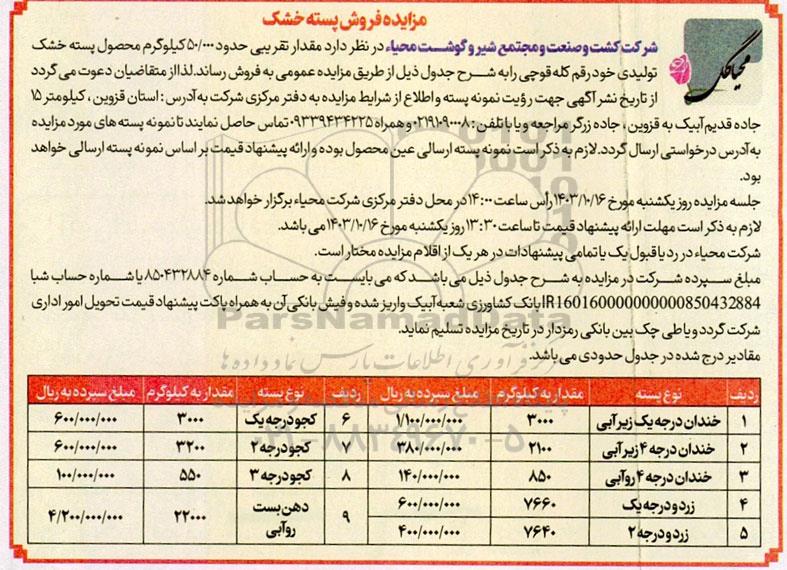 مزایده فروش پسته خشک
محیاگل
شرکت کشت و صنعت و مجتمع شیر و گوشت محیاء در نظر دارد مقدار تقریبی حدود ۵۰/۰۰۰ کیلوگرم محصول پسته خشک
تولیدی خود رقم کله قوچی را به شرح جدول ذیل از طریق مزایده عمومی به فروش رساند. لذا از متقاضیان دعوت می گردد
از تاریخ نشر آگهی جهت رؤیت نمونه پسته و اطلاع از شرایط مزایده به دفتر مرکزی شرکت به آدرس : استان قزوین ، کیلومتر ۱۵
جاده قدیم آبیک به قزوین ، جاده زرگر مراجعه و یا با تلفن : ۰۲۱۹۱۰۹۰۰۰۸ و همراه ۰۹۳۳۹۴۳۴۲۲۵ تماس حاصل نمایند تا نمونه پسته های مورد مزایده
به آدرس درخواستی ارسال گردد. لازم به ذکر است نمونه پسته ارسالی عین محصول بوده و ارائه پیشنهاد قیمت بر اساس نمونه پسته ارسالی خواهد
بود.
جلسه مزایده روز یکشنبه مورخ ۱۴۰۳/۱۰/۱۶ رأس ساعت ۱۴:۰۰ در محل دفتر مرکزی شرکت محیاء برگزار خواهد شد.
لازم به ذکر است مهلت ارائه پیشنهاد قیمت تا ساعت ۱۳:۳۰ روز یکشنبه مورخ ۱۴۰۳/۱۰/۱۶ می باشد.
شرکت محیاء در رد یا قبول یک یا تمامی پیشنهادات در هر یک از اقلام مزایده مختار است.
مبلغ سپرده شرکت در مزایده به شرح جدول ذیل می باشد که می بایست به حساب شماره ۸۵۰۴۳۲۸۸۴ یا شماره حساب شبا
IR160160000000000850432884 بانک کشاورزی شعبه آبیک واریز شده و فیش بانکی آن به همراه پاکت پیشنهاد قیمت تحویل امور اداری
شرکت گردد و یا طی چک بین بانکی رمزدار در تاریخ مزایده تسلیم نماید.
مقادیر درج شده در جدول حدودی می باشد.
ParsNamadData
مرکز فرآوری اطلاعات پارس نماد داده ها
۰۲۱-۸۸۳۴۹۶۷۰-۵
ردیف نوع پسته مقدار به کیلوگرم مبلغ سپرده به ریال ردیف نوع پسته مقدار به کیلوگرم مبلغ سپرده به ریال
۱ خندان درجه یک زیر آبی ۳۰۰۰ ۱/۱۰۰/۰۰۰/۰۰۰ ۶ کجو درجه یک ۳۰۰۰ ۶۰۰/۰۰۰/۰۰۰
۲ خندان درجه ۴ زیر آبی ۲۱۰۰ ۳۸۰/۰۰۰/۰۰۰ ۷ کجو درجه ۲ ۳۲۰۰ ۶۰۰/۰۰۰/۰۰۰
۳ خندان درجه ۴ روآبی ۸۵۰ ۱۴۰/۰۰۰/۰۰۰ ۸ کجو درجه ۳ ۵۵۰ ۱۰۰/۰۰۰/۰۰۰
۴ زرد و درجه یک ۷۶۶۰ ۶۰۰/۰۰۰/۰۰۰ ۹ دهن بست روآبی ۲۲۰۰۰ ۴/۲۰۰/۰۰۰/۰۰۰
۵ زرد و درجه ۲ ۷۶۴۰ ۴۰۰/۰۰۰/۰۰۰